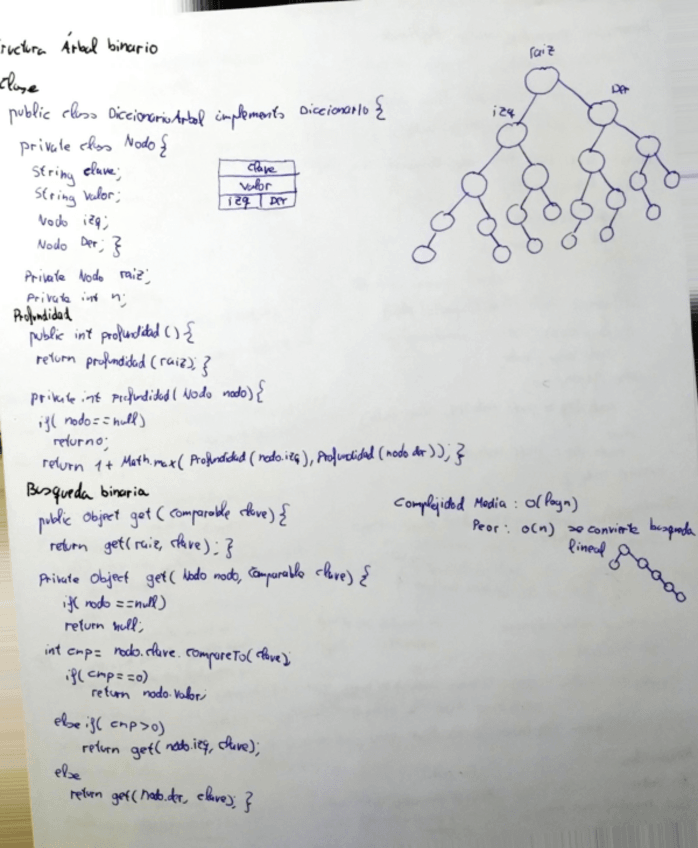 ructura Árbol binario
Clase
public class DiccionarioArbol implements Diccionario {
private class Nodo {
String clave;
String valor;
Nodo izq;
Nodo Der; }
Private Nodo raiz;
Private int n;
clave
valor
izq Der
raiz
izq
Der
Profundidad
public int profundidad () {
return profundidad (raiz); }
private int Profundidad ( Nodo nodo) {
if( nodo == null)
return 0;
return 1 + Math.max( Profundidad (nodo.izq), Profundidad (nodo der)); }
Busqueda binaria
public Object get ( comparable clave) {
return get( raiz, clave) ; }
Private Object get( Nodo nodo, Comparable clave) {
if( nodo == null)
return null;
int cmp = nodo. clave. compareTo( clave);
if( cmp == 0)
return nodo. valor;
else if( cmp > 0)
return get( nodo. izq, clave);
else
return get( nodo. der, clave); }
Complejidad Media : O(logn)
Peor : O(n) se convierte busqueda
lineal